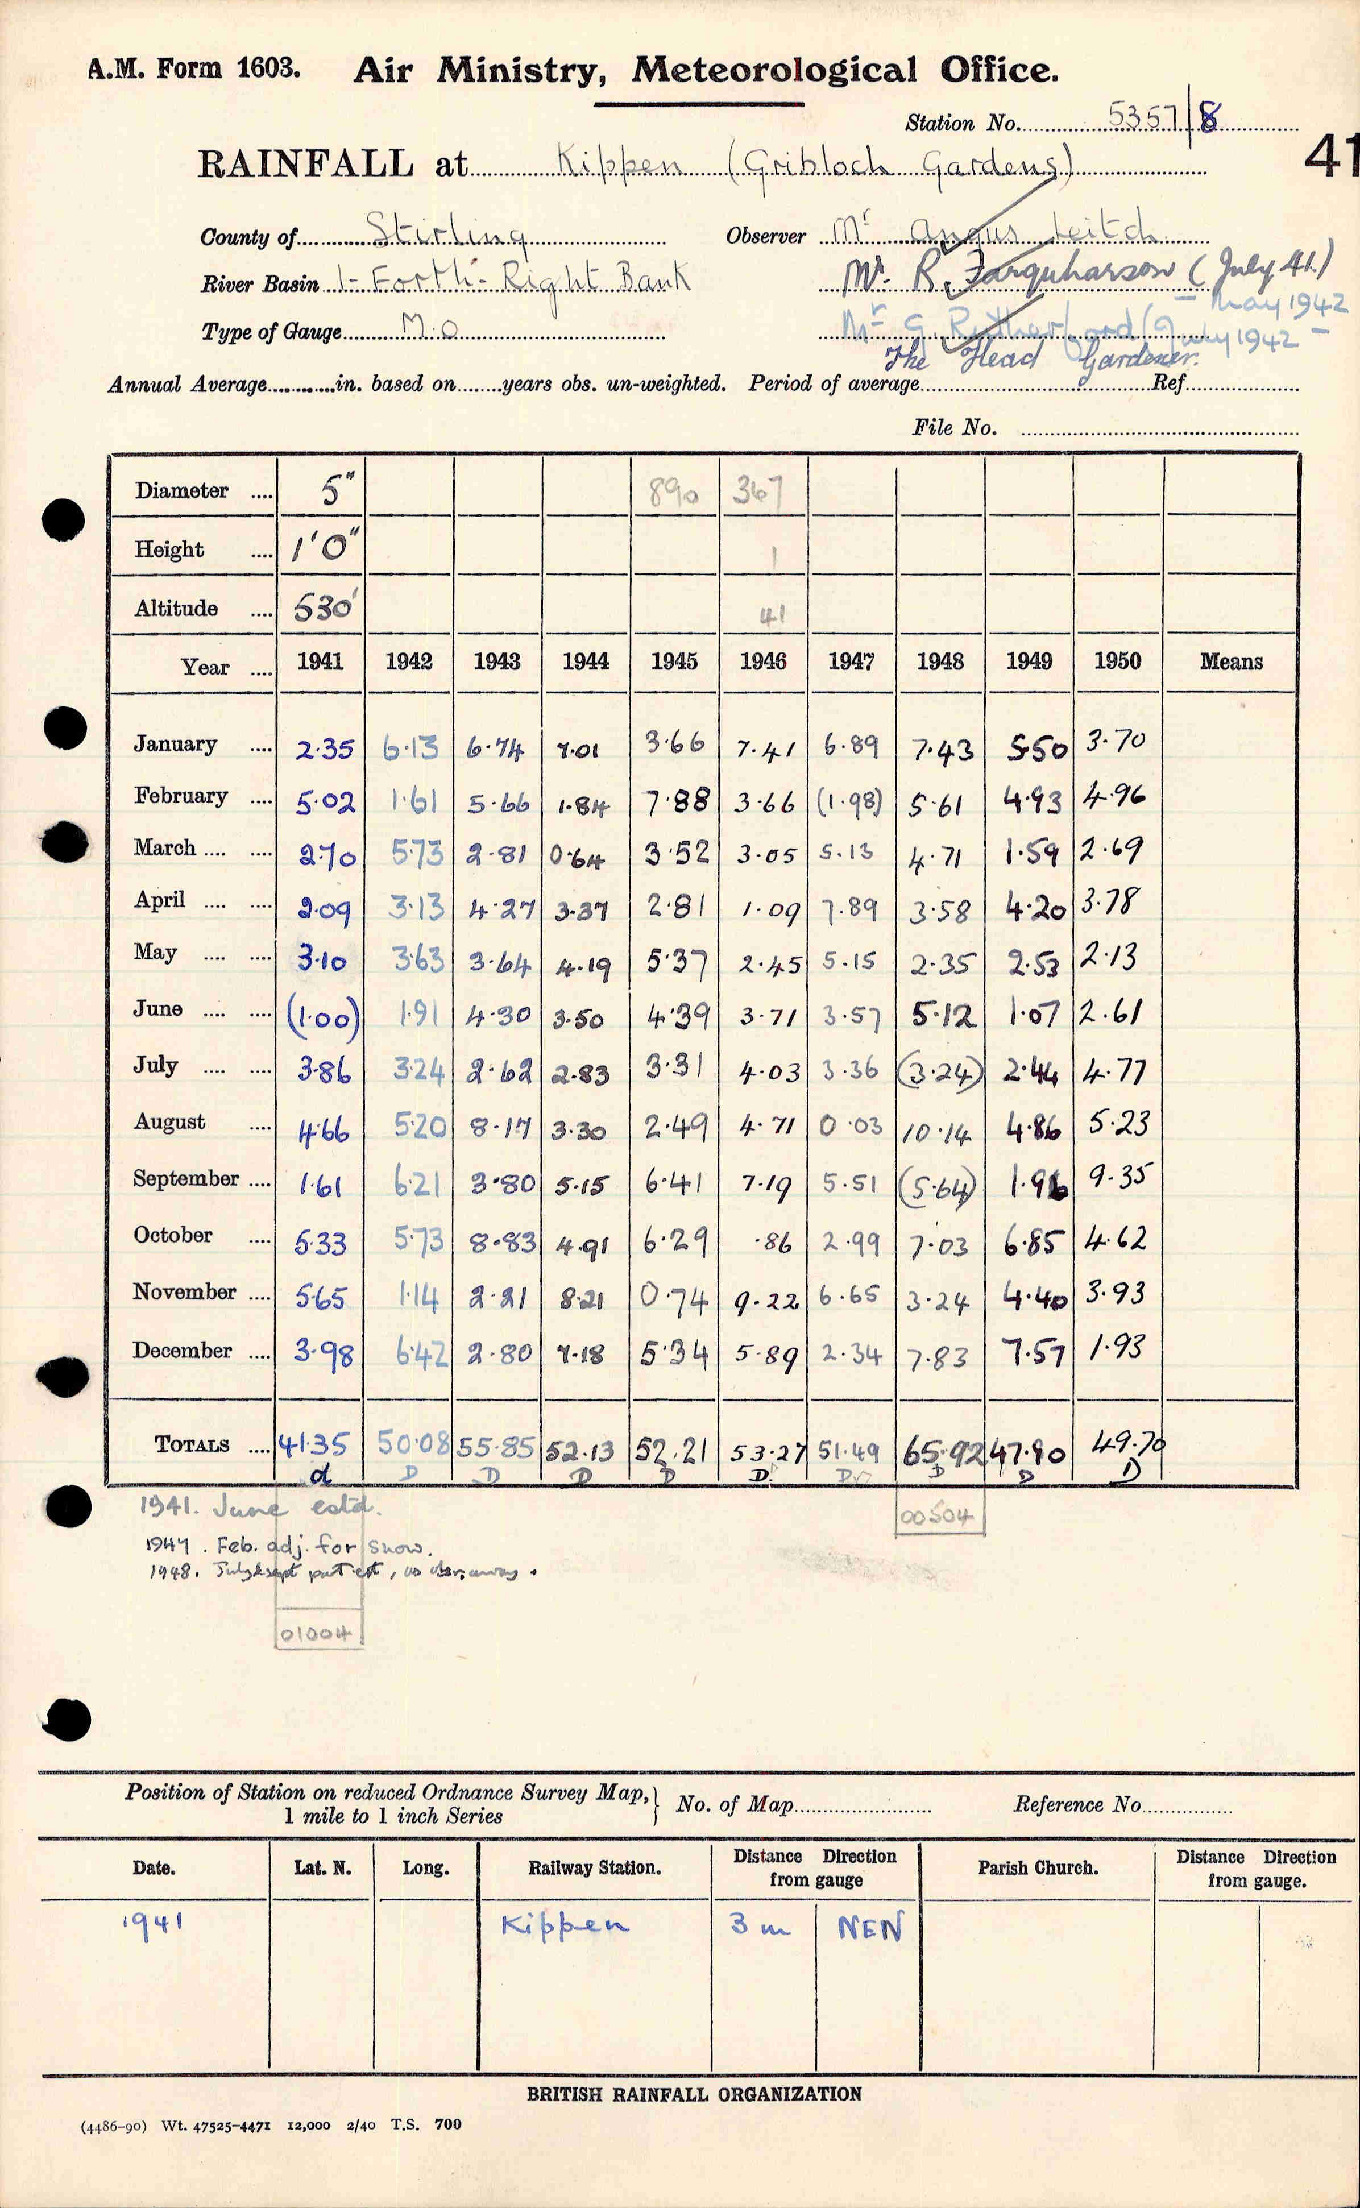 A.M. Form 1603. Air Ministry, Meteorological Office.
Station No. 5357/8
41
RAINFALL at Kippen (Gribloch Gardens)
County of Stirling Observer Mr Angus Leitch
River Basin 1- Forth - Right Bank Mr. R. Farquharson (July 41.)
– May 1942
Type of Gauge M.O Mr G. Rutherford (July 1942 –
The Head Gardener.
Annual Average in. based on years obs. un-weighted. Period of average Ref
File No.
Diameter .... 5" 890 367
Height .... 1'0" 1
Altitude .... 530' 41
Year .... 1941 1942 1943 1944 1945 1946 1947 1948 1949 1950 Means
January .... 2.35 6.13 6.74 7.01 3.66 7.41 6.89 7.43 5.50 3.70
February .... 5.02 1.61 5.66 1.84 7.88 3.66 (1.98) 5.61 4.93 4.96
March .... .... 2.70 5.73 2.81 0.64 3.52 3.05 5.13 4.71 1.59 2.69
April .... .... 2.09 3.13 4.27 3.37 2.81 1.09 7.89 3.58 4.20 3.78
May .... .... 3.10 3.63 3.64 4.19 5.37 2.45 5.15 2.35 2.53 2.13
June .... .... (1.00) 1.91 4.30 3.50 4.39 3.71 3.57 5.12 1.07 2.61
July .... .... 3.86 3.24 2.62 2.83 3.31 4.03 3.36 (3.24) 2.44 4.77
August .... 4.66 5.20 8.17 3.30 2.49 4.71 0.03 10.14 4.86 5.23
September .... 1.61 6.21 3.80 5.15 6.41 7.19 5.51 (5.64) 1.96 9.35
October .... 5.33 5.73 8.83 4.91 6.29 .86 2.99 7.03 6.85 4.62
November .... 5.65 1.14 2.21 8.21 0.74 9.22 6.65 3.24 4.40 3.93
December .... 3.98 6.42 2.80 7.18 5.34 5.89 2.34 7.83 7.57 1.93
TOTALS .... 41.35 50.08 55.85 52.13 52.21 53.27 51.49 65.92 47.90 49.70
d D D D D D D D D D
1941. June estd.
00504
1947. Feb. adj. for snow.
1948. July & Sept part est, as obs. away.
01004
Position of Station on reduced Ordnance Survey Map,} No. of Map Reference No.
1 mile to 1 inch Series
Date. Lat. N. Long. Railway Station. Distance Direction from gauge Parish Church. Distance Direction from gauge.
1941 Kippen 3 m NEN
BRITISH RAINFALL ORGANIZATION
(4486-90) Wt. 47525-4471 12,000 2/40 T.S. 700